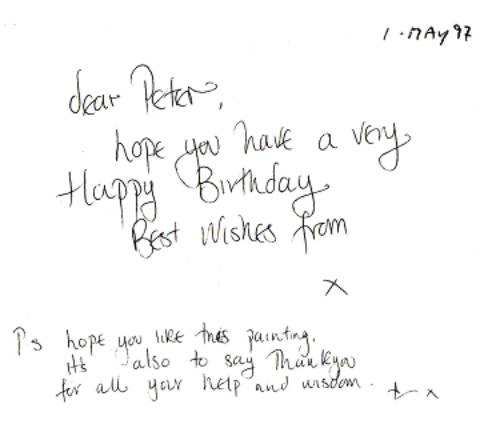 1 · MAY 97
dear Peter,
hope you have a very
Happy Birthday
Best Wishes from
x
Ps hope you like this painting.
it's also to say Thankyou
for all your help and wisdom.
x